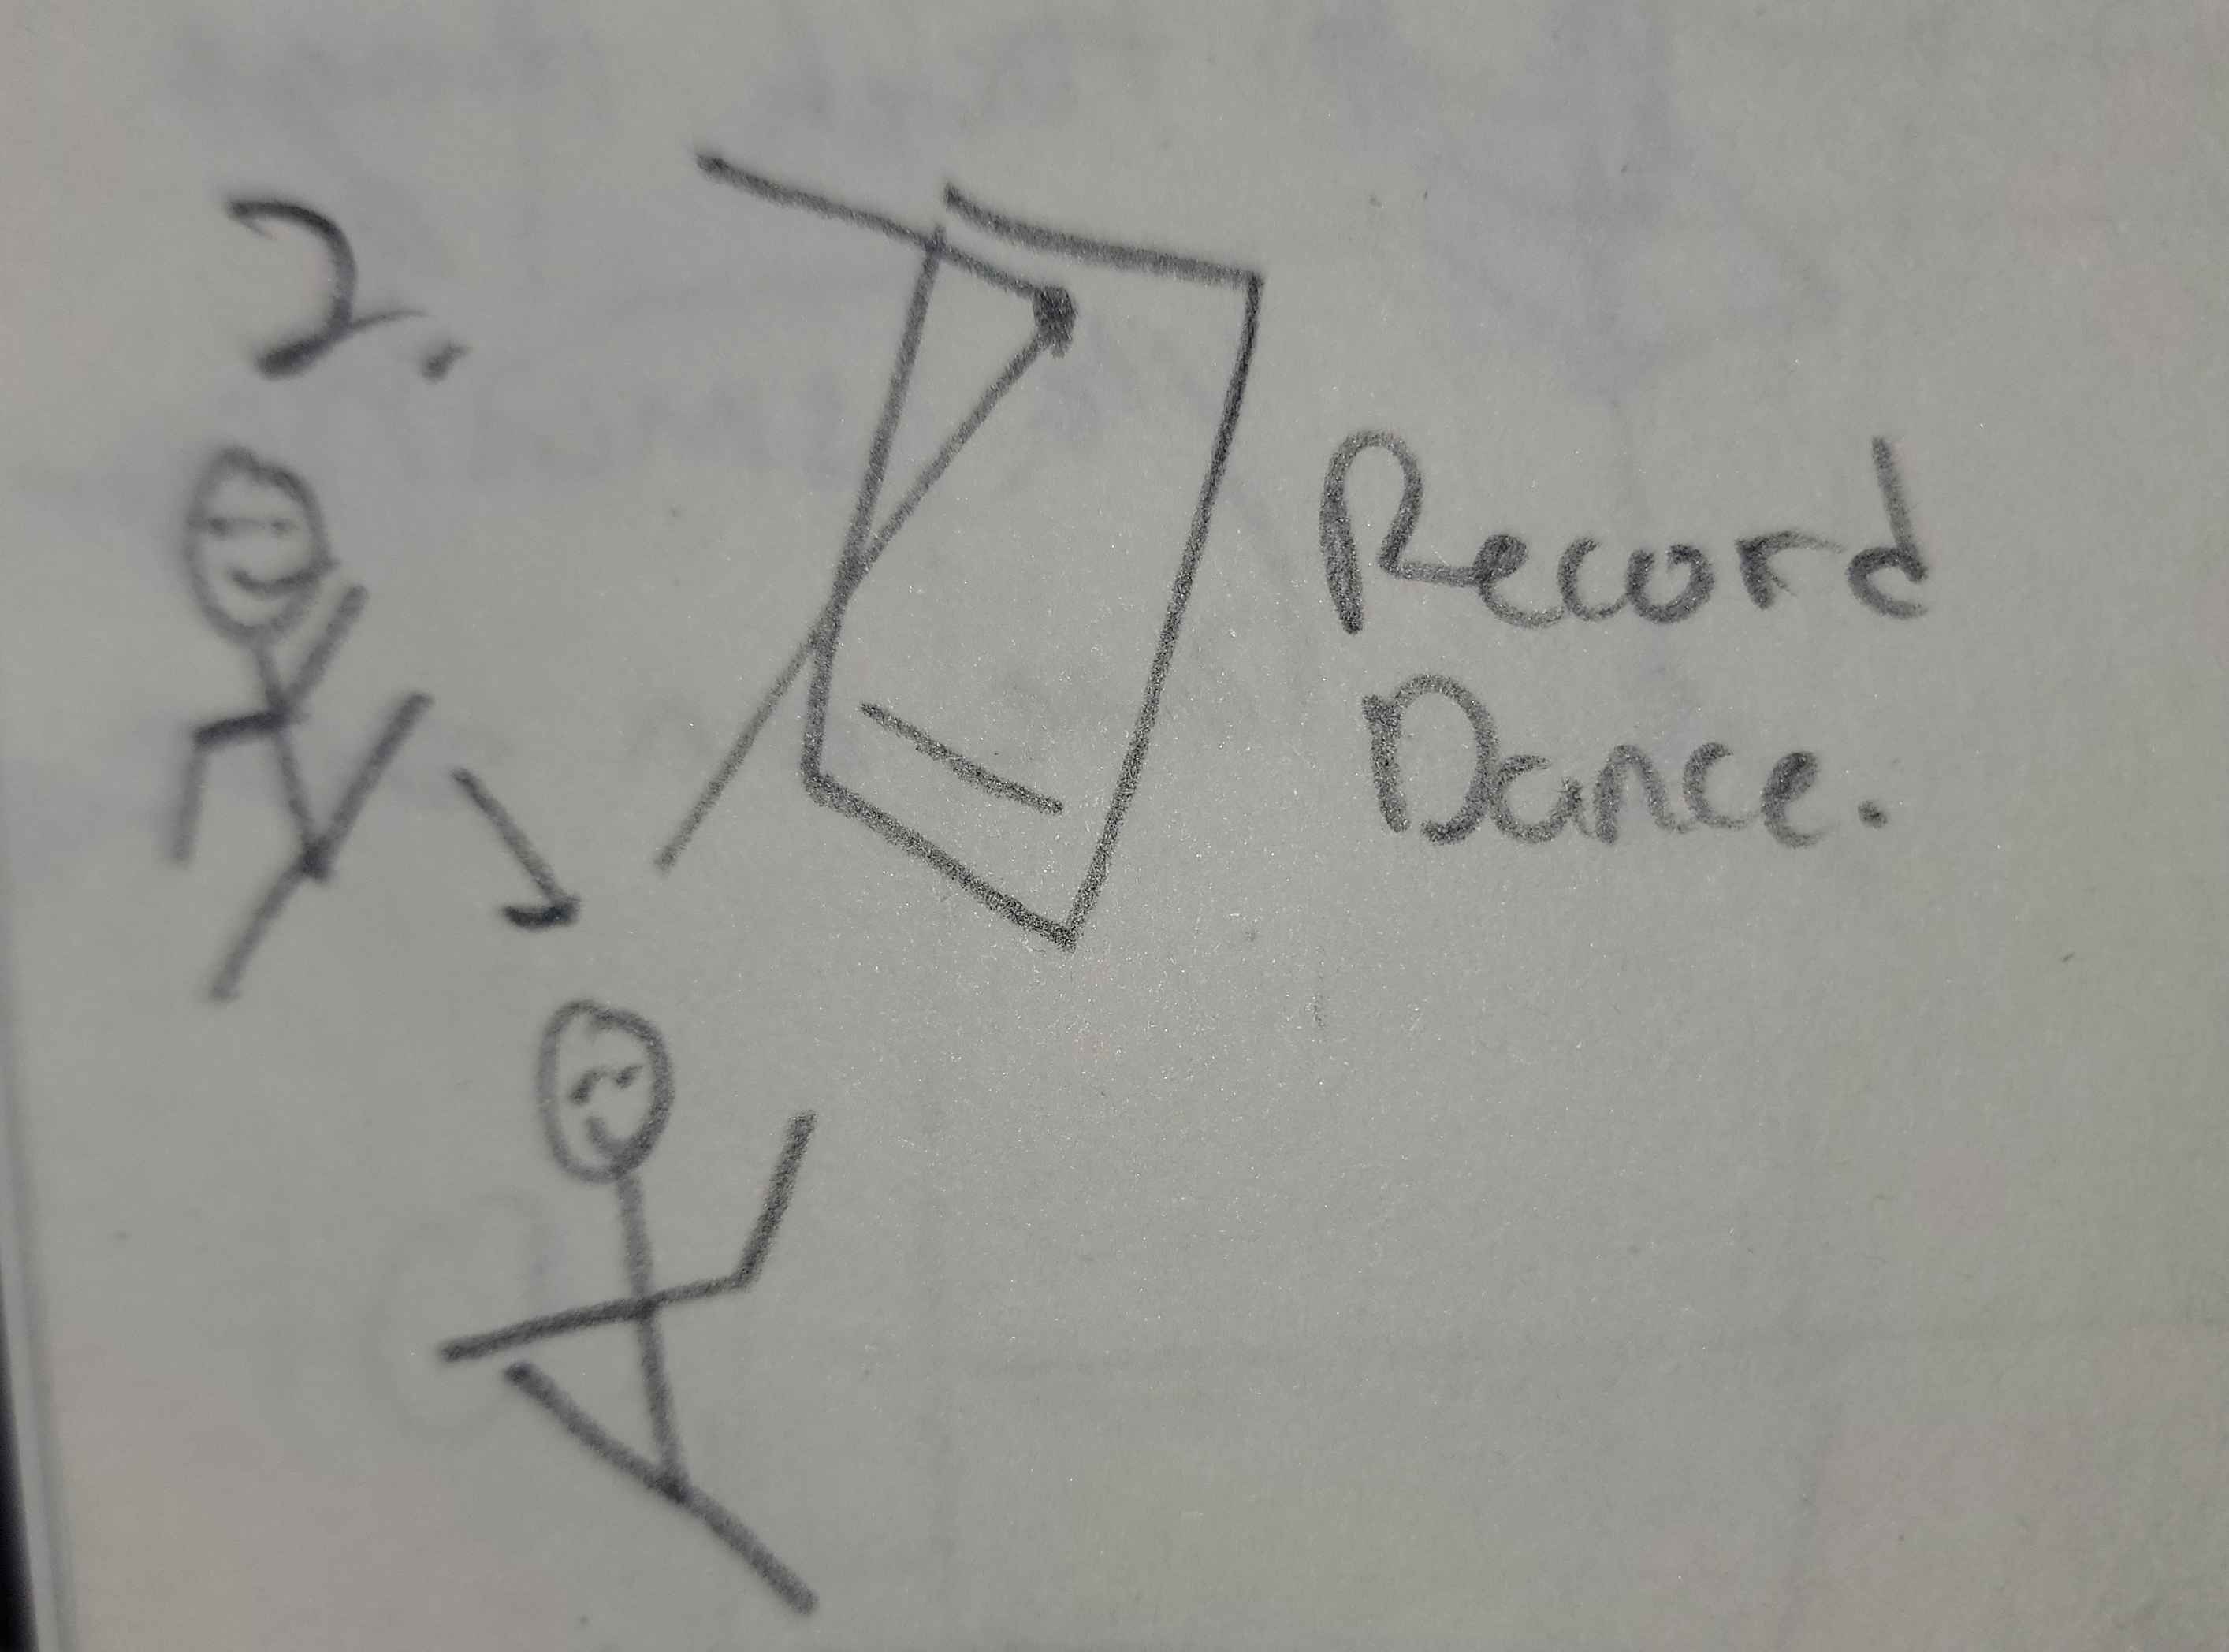 2.
Record
Dance.